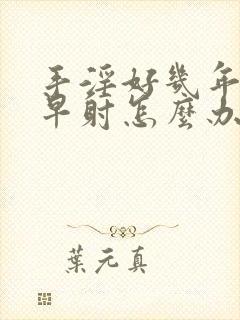 手淫好幾年
早射怎麼办
葉元真